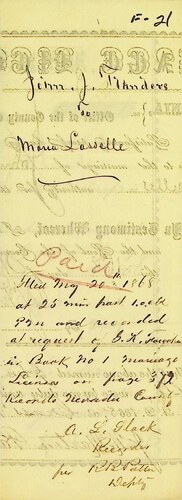 F-21
John J. Flanders
To
Maria Lasselle
Paid
Filed May 20th 1868
at 25 min past 1 o,clk
P.M and recorded
at request of G. K.
in Book No 1 marriage
Licenses on page 372
Records Nevada County
A. L. Slack
Recorder
per R. B. Patten
Depty